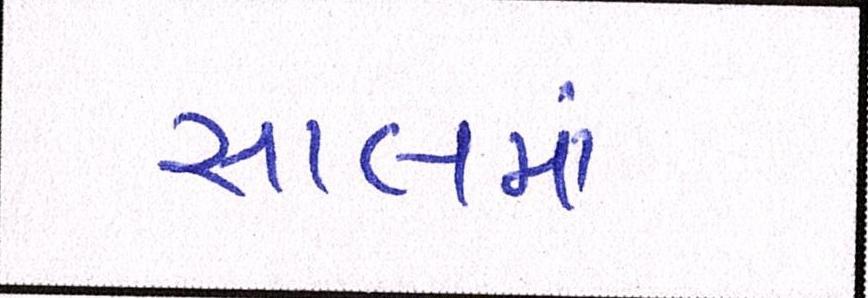 સાલમાં